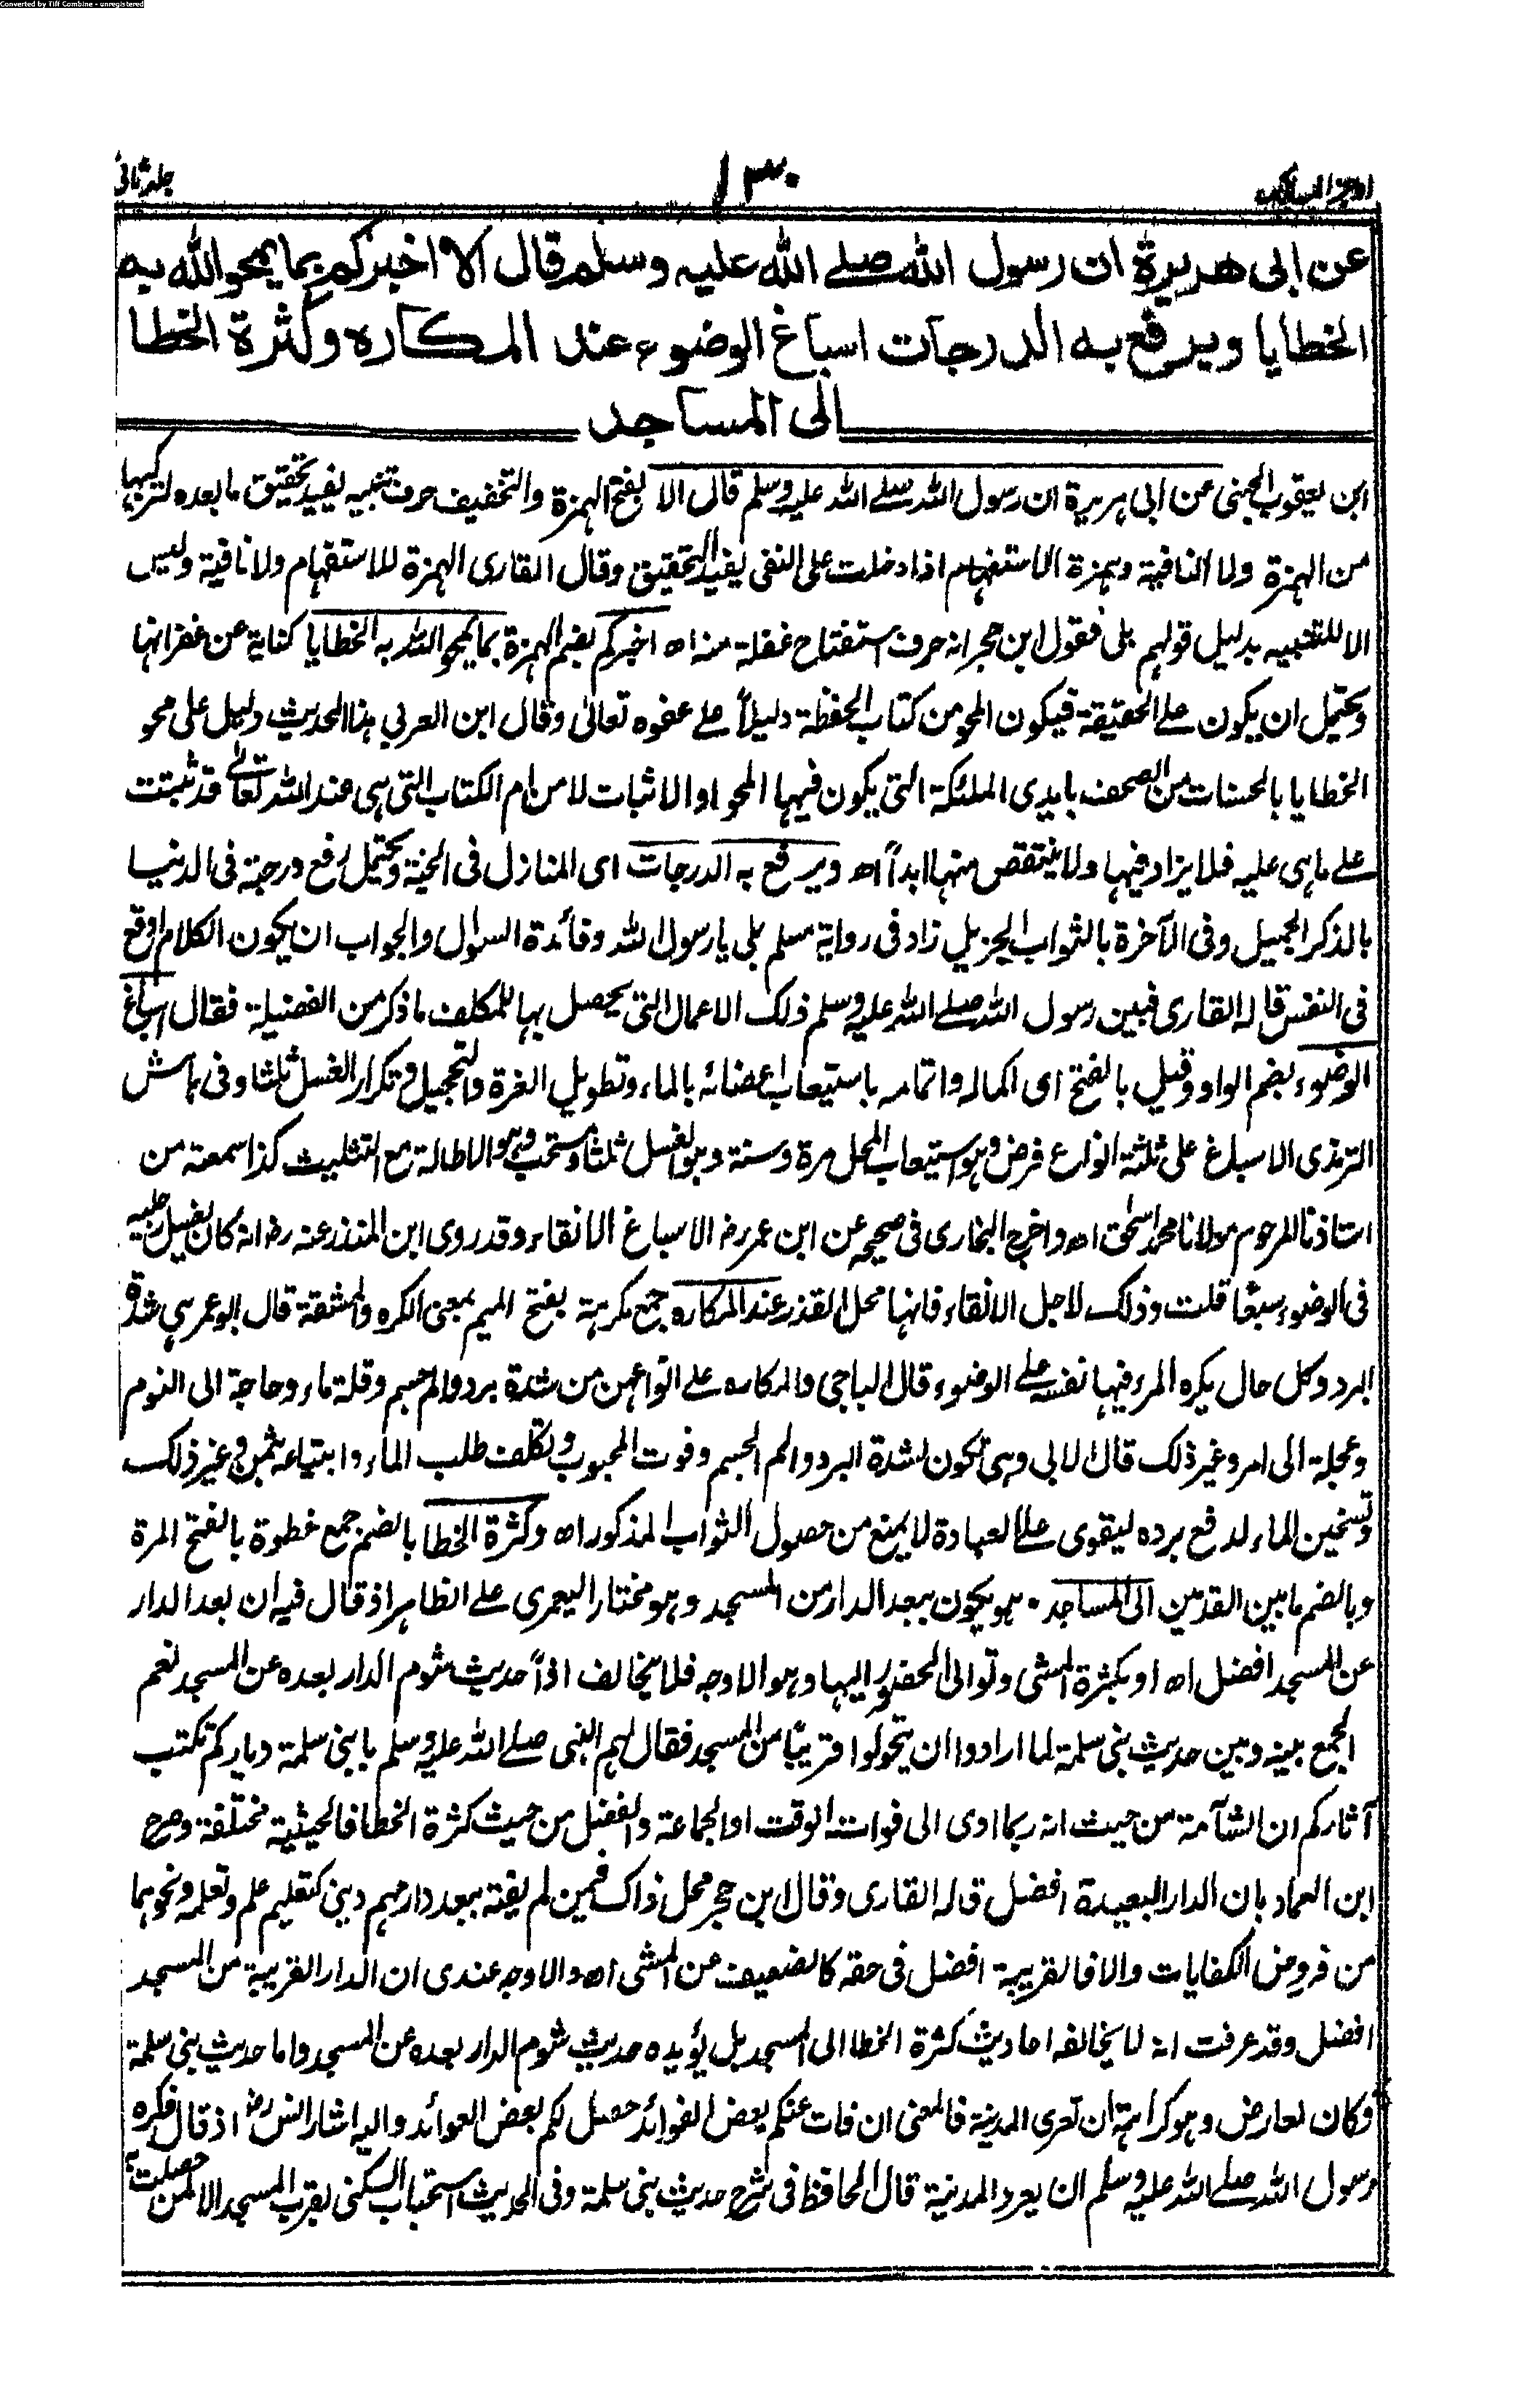 Converted by Tiff Combine - unregistered
اوجز المسالك
١٣٠
جلد ثانی
عن ابی هريرة ان رسول الله صلے الله عليه وسلم قال الا اخبركم بما يمحو الله به
الخطايا ويرفع به الدرجات اسباغ الوضوء عند المكاره وكثرة الخطا
الى المساجد
ابن يعقوب الجهنى عن ابى هريرة ان رسول الله صلے الله عليه وسلم قال الا بفتح الهمزة والتخفيف حرف تنبيه يفيد تحقيق ما بعده لتركبها
من الهمزة ولا النافية وهمزة الاستفهام اذا دخلت على النفى يفيد التحقيق وقال القارى الهمزة للاستفهام ولا نافية وليس
الا للتنبيه بدليل قولهم بلى فقول ابن حجر انه حرف استفتاح غفلة منه اه اخبركم بضم الهمزة بما يمحو الله به الخطايا كناية عن غفرانها
ويحتمل ان يكون على الحقيقة فيكون المحو من كتاب الحفظة دليلاً على عفوه تعالىٰ وقال ابن العربي هذا الحديث دليل على محو
الخطايا بالحسنات من الصحف بايدى الملئكة التى يكون فيها المحو والاثبات لا من ام الكتاب التى هى عند الله تعالىٰ قد ثبتت
على ما هى عليه فلا يزاد فيها ولا ينتقص منها ابداً اه ويرفع به الدرجات اى المنازل فى الجنة ويحتمل رفع درجة فى الدنيا
بالذكر الجميل وفى الآخرة بالثواب الجزيل زاد فى رواية مسلم بلى يا رسول الله وفائدة السوال والجواب ان يكون الكلام اوقع
فى النفس قاله القارى فبين رسول الله صلے الله عليه وسلم ذلك الاعمال التى يحصل بها للمكلف ما ذكر من الفضيلة فقال اسباغ
الوضوء بضم الواو وقيل بالفتح اى اكماله واتمامه باستيعاب اعضائه بالماء وتطويل الغرة والتحجيل وتكرار الغسل ثلثا وفى هامش
الترمذى الاسباغ على ثلثة انواع فرض وهو استيعاب المحل مرة وسنة وهو الغسل ثلثا ومستحب وهو الاطالة مع التثليث كذا سمعته من
استاذنا المرحوم مولانا محمد اسحٰق اه واخرج البخارى فى صحيحه عن ابن عمر رض الاسباغ الانقاء وقد روى ابن المنذر عنه رض انه كان يغسل رجليه
فى الوضوء سبعًا قلت وذلك لاجل الانقاء فانها محل القذر عند المكاره جمع مكرهة بفتح الميم بمعنى الكره والمشقة قال ابو عمر هى شدة
البرد وكل حال يكره المرء فيها نفسه على الوضوء قال الباجى والمكاره على انواعهن من شدة برد والم جسم وقلة ماء وحاجة الى النوم
وعجلة الى امر وغير ذلك قال الابى وهى تكون لشدة البرد والم الجسم وفوت المحبوب وتكلف طلب الماء وابتياعه بثمن وغير ذلك
وتسخين الماء لدفع برده ليقوى على العبادة لا يمنع من حصول الثواب المذكور اه وكثرة الخطا بالضم جمع خطوة بالفتح المرة
وبالضم ما بين القدمين الى المساجد . هو يكون ببعد الدار من المسجد وهو مختار اليعمرى على الظاهر اذ قال فيه ان بعد الدار
عن المسجد افضل اه او بكثرة المشى وتوالى الحضور اليها وهو الاوجه فلا يخالف اذاً حديث شوم الدار بعده عن المسجد نعم
الجمع بينه وبين حديث بنى سلمة لما ارادوا ان يتحولوا قريبًا من المسجد فقال لهم النبى صلے الله عليه وسلم يا بنى سلمة دياركم تكتب
آثاركم ان الشآمة من حيث انه ربما ادى الى فوات الوقت او الجماعة والفضل من حيث كثرة الخطا فالحيثية مختلفة وصرح
ابن العماد بان الدار البعيدة افضل قاله القارى وقال ابن حجر محل ذاك فيمن لم يفته ببعد داره مهم دينى كتعليم علم وتعلمه ونحوهما
من فروض الكفايات والا فالقريبة افضل فى حقه كالضعيف عن المشى اه والاوجه عندى ان الدار القريبة من المسجد
افضل وقد عرفت انه لا يخالفه احاديث كثرة الخطا الى المسجد بل يؤيده حديث شوم الدار بعده عن المسجد واما حديث بنى سلمة
فكان لعارض وهو كراهة ان تعرى المدينة فالمعنى ان فات عنكم بعض الفوائد حصل لكم بعض العوائد واليه اشار انس رض اذ قال فكره
رسول الله صلے الله عليه وسلم ان يعرو المدينة قال الحافظ فى شرح حديث بنى سلمة وفى الحديث استحباب السكنى بقرب المسجد الا لمن حصلت به